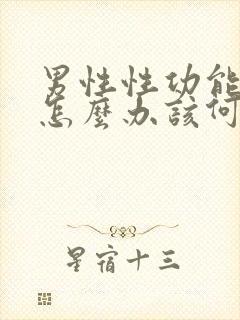 男性性功能
怎麼办該何
星宿十三